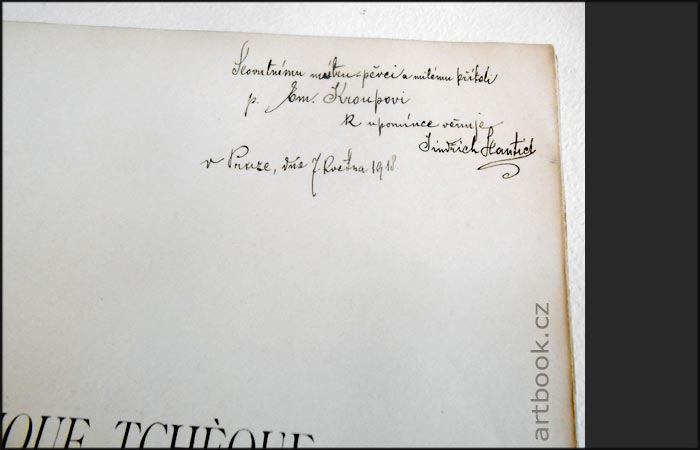 Slovutnému mistru-pěvci a milému příteli
p. Em. Kroupovi
k upomínce věnuje
Jindřich Hantich
v Praze, dne 7. května 1918.
IQUE TCHÈQUE
artbook.cz